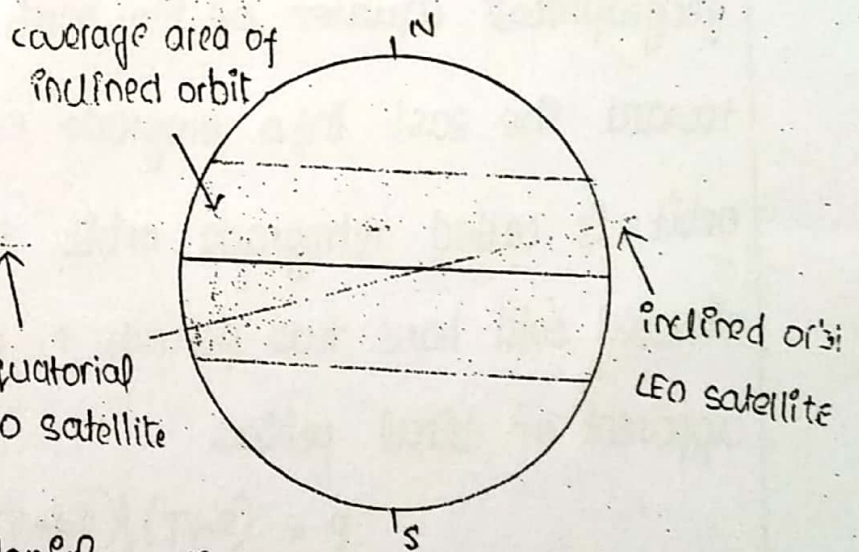 coverage area of
inclined orbit
N
inclined
LEO satellite
quatorial
O satellite
S